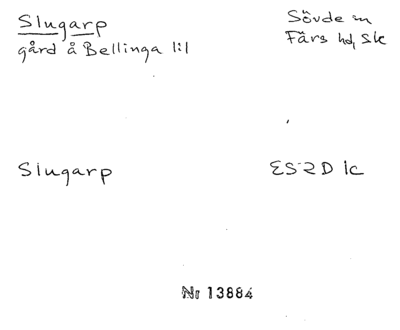 Slugarp
gård å Bellinga 1:1
Sövde sn
Färs hd, Sk
Slugarp
ES 2D 1c
Nr 13884